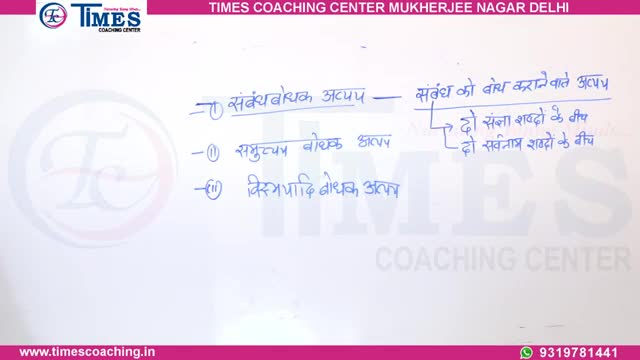 TIMES COACHING CENTER MUKHERJEE NAGAR DELHI
TIMES
COACHING CENTER
(i) संबंधबोधक अव्यय — संबंध को बोध कराने वाले अव्यय
दो संज्ञा शब्दों के बीच
दो सर्वनाम शब्दों के बीच
(ii) समुच्चय बोधक अव्यय
(iii) विस्मयादि बोधक अव्यय
TIMES
COACHING CENTER
www.timescoaching.in
9319781441